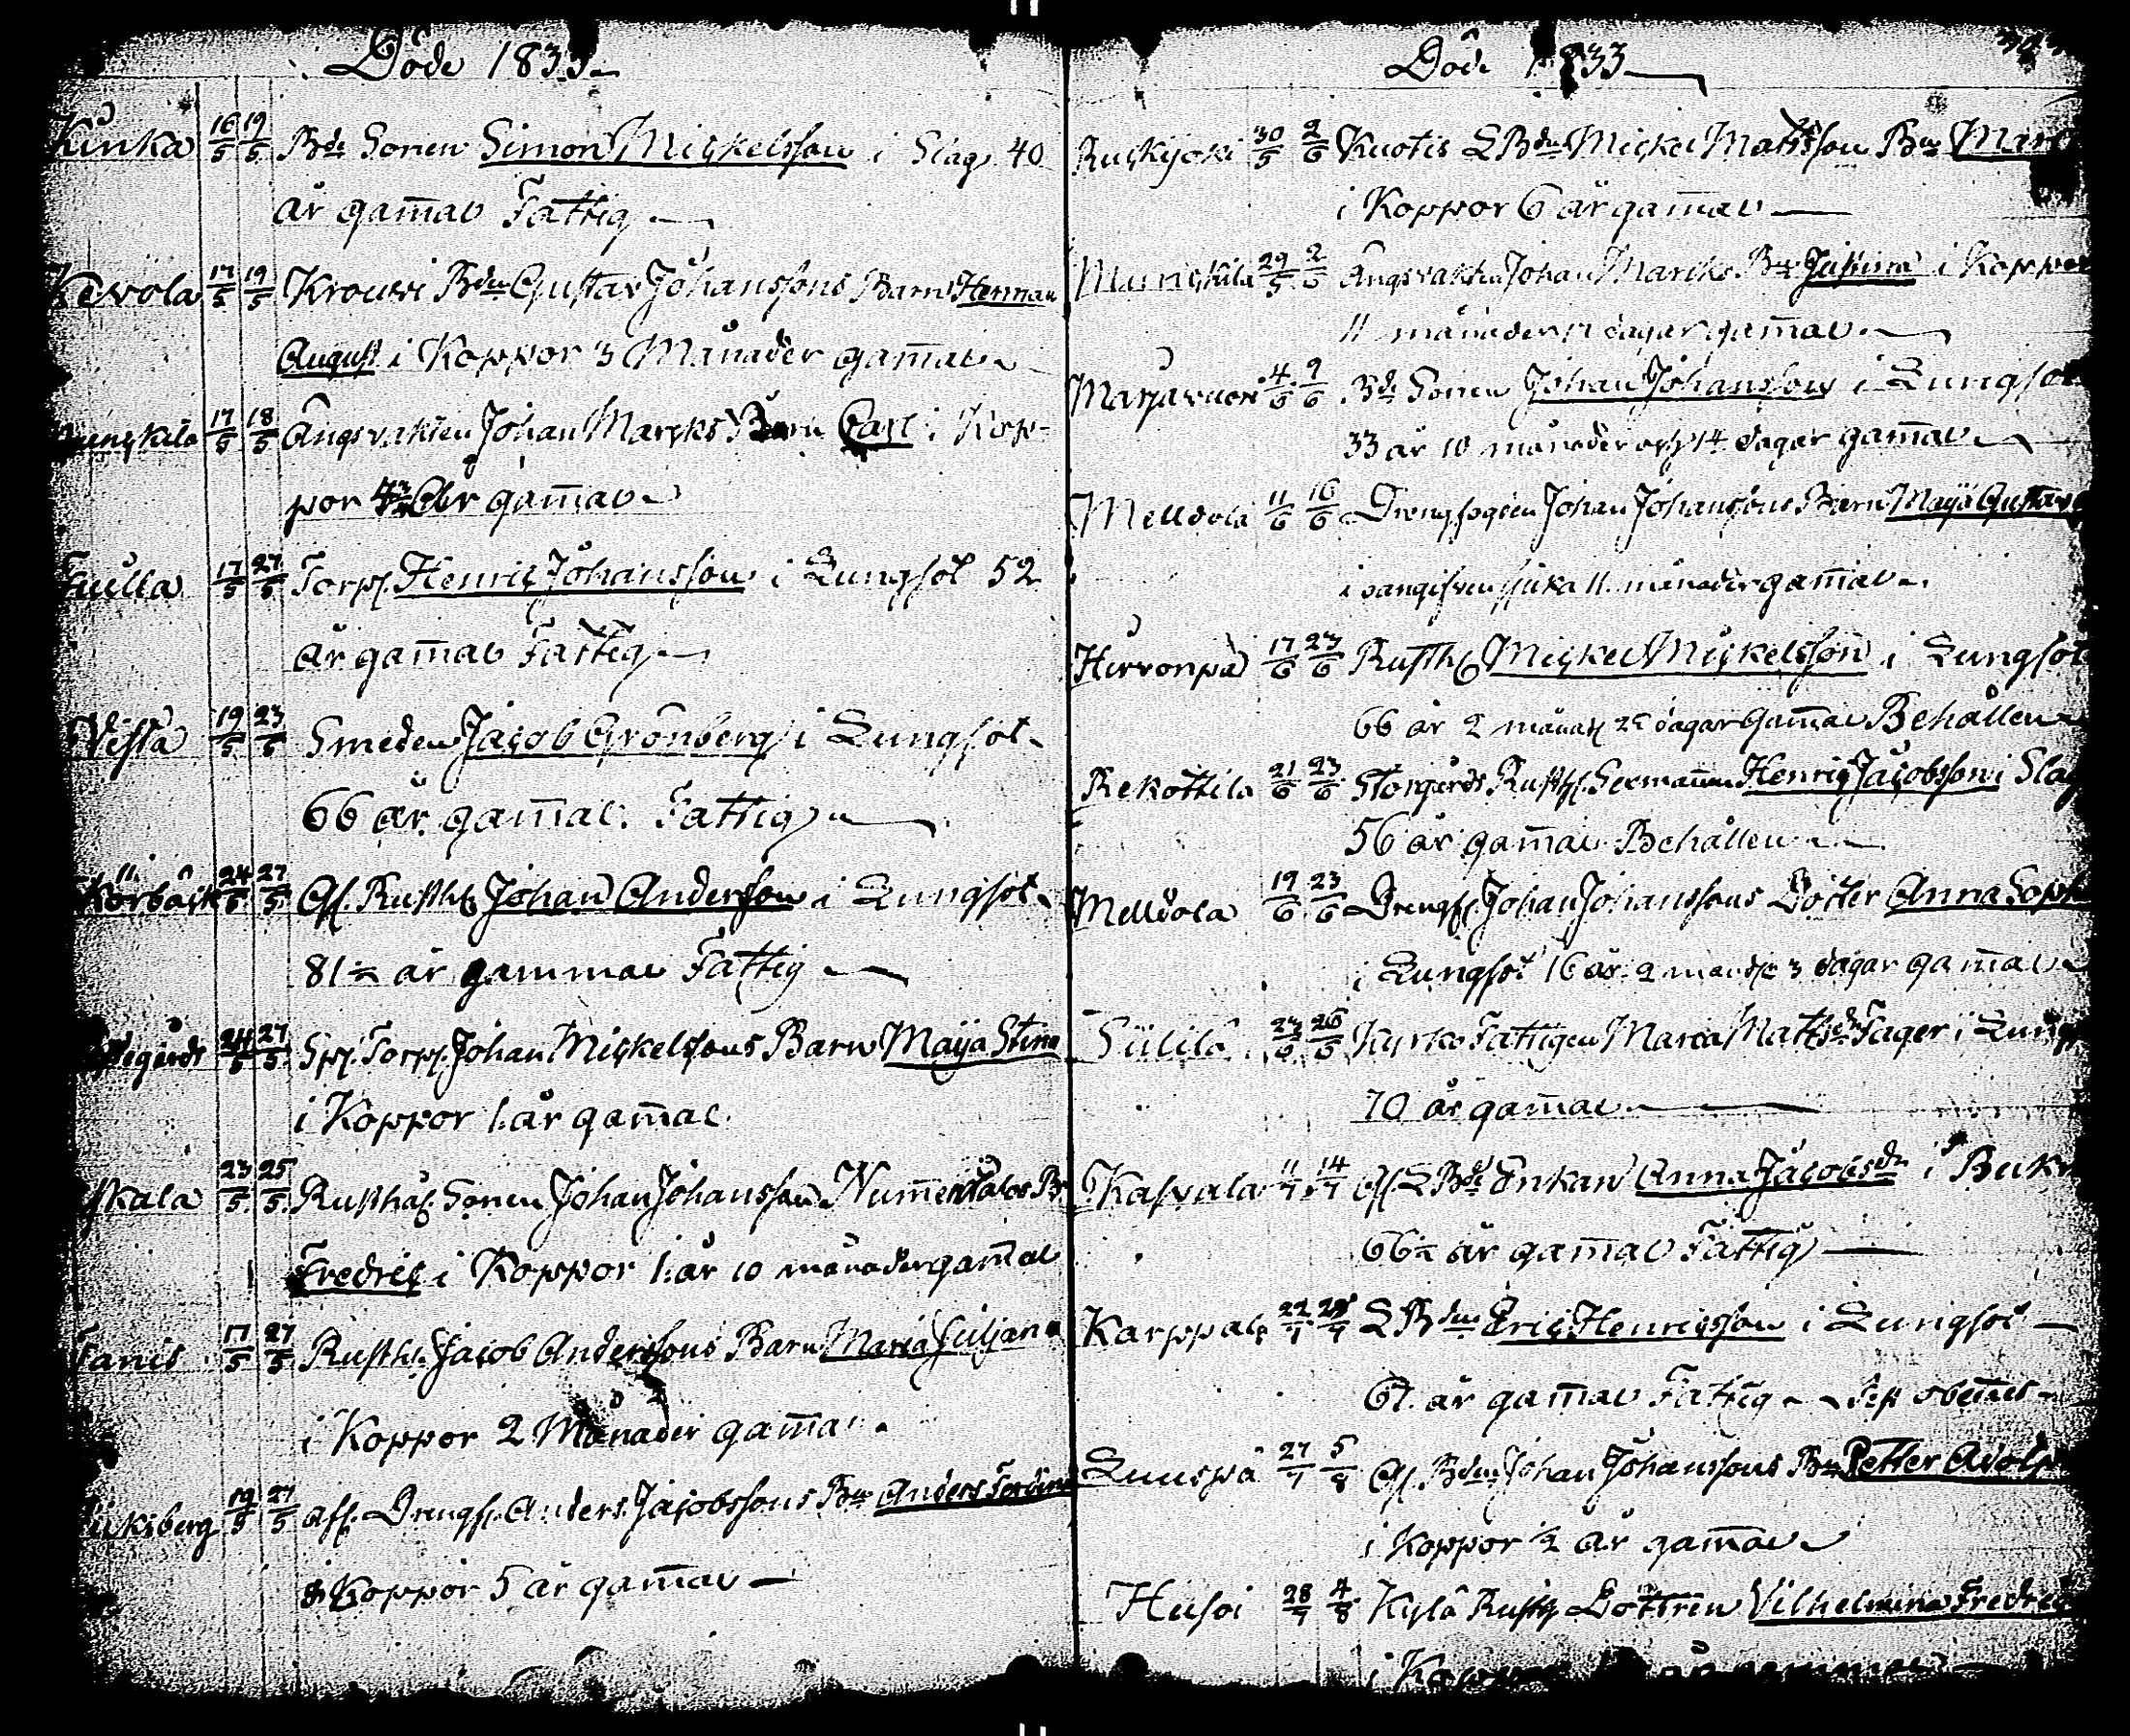 Döde 1833
Kinka 16/5 19/5 Bde Sonen Simon Mickelsson i Slag 40
år gam̄al Fattig
Kevola 17/5 19/5 Krouvi Bdns Gustav Johanssons Barn Herman
August i Koppor 3 Månader gam̄al
17/5 18/5 Ängsvakten Johan Marcks Barn Carl i Kop-
por År gam̄al
17/5 27/5 Torp. Henric Johansson i Lungsot 52
år gam̄al Fattig
Vista 19/5 23/5 Smeden Jacob Grönberg i Lungsot
66 år gam̄al. Fattig
Körbäck 24/5 27/5 Afsk. Rusth. Johan Andersson i Lungsot
81½ år gammal Fattig
24/5 27/5 Sps. Torp. Johan Mickelssons Barn Maija Stina
i Koppor 1 år gam̄al
23/5 25/5 Rusthåll. Sonen Johan Johansson Num̄entalos Bn
Fredric i Koppor 1 år 10 månader gam̄al
Tanis 17/5 27/5 Rusth. Jacob Anderssons Barn Maria Juljana
i Koppor 2 Månader gam̄al
19/5 27/5 afsk. Drengsk. Anders Jacobssons Bn Anders Ferdinand
i Koppor 5 år gam̄al
Döde 1833
Ruskijoki 30/5 2/6 Kuotis LBdns Mickel Mattsson Bn
i Koppor 6 år gam̄al
Munskila 29/5 2/6 Ängsvakten Johan Marcks Bn Justina i Koppor
11 månader 17 dagar gam̄al
Marjavuori 4/6 9/6 Bde Sonen Johan Johansson i Lungsot
33 år 10 månader och 14 dagar gam̄al
Melldola 11/6 16/6 Drengfogden Johan Johanssons Barn Maija Gustava
i oangifven sjuka 11 månader gam̄al
Hirvonpä 17/6 23/6 Rusth. Mickel Mickelsson i Lungsot
66 år 2 månad 25 dagar gam̄al Behållen
Rekottila 21/6 23/6 Storgårds Rusth. Sexman̄en Henric Jacobsson i Slag
56 år gam̄al Behållen
Melldola 19/6 23/6 Drengf. Johan Johanssons Dotter Anna Soph
i Lungsot 16 år 2 månad 3 dagar gam̄al
Siilila 23/6 26/6 Kyrko Fattigen Maria Mattsdr Fager i Lung
70 år gam̄al
Kaspala 11/7 14/7 Afsk. LBde Enkan Anna Jacobsdr i Buk
66½ år gam̄al Fattig
Karppala 22/7 28/7 LBdns Eric Henricsson i Lungsot
67 år gam̄al Fattig
Luuspä 27/7 5/8 Afsk. Bdns Johan Johanssons Bn Petter Adolp
i Koppor ½ år gam̄al
Husoi 28/7 4/8 Kylä Rusth. Dottren Vilhelmina Fredric
i Koppor